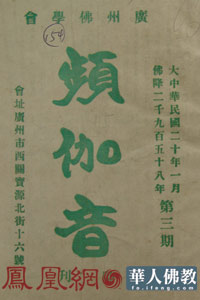 廣州佛學會
154
頻伽音
月刊
大中華民國二十年一月
佛降二千九百五十八年
第三期
會址廣州市西關寶源北街十六號
鳳凰網
華人佛教
fo.ifeng.com